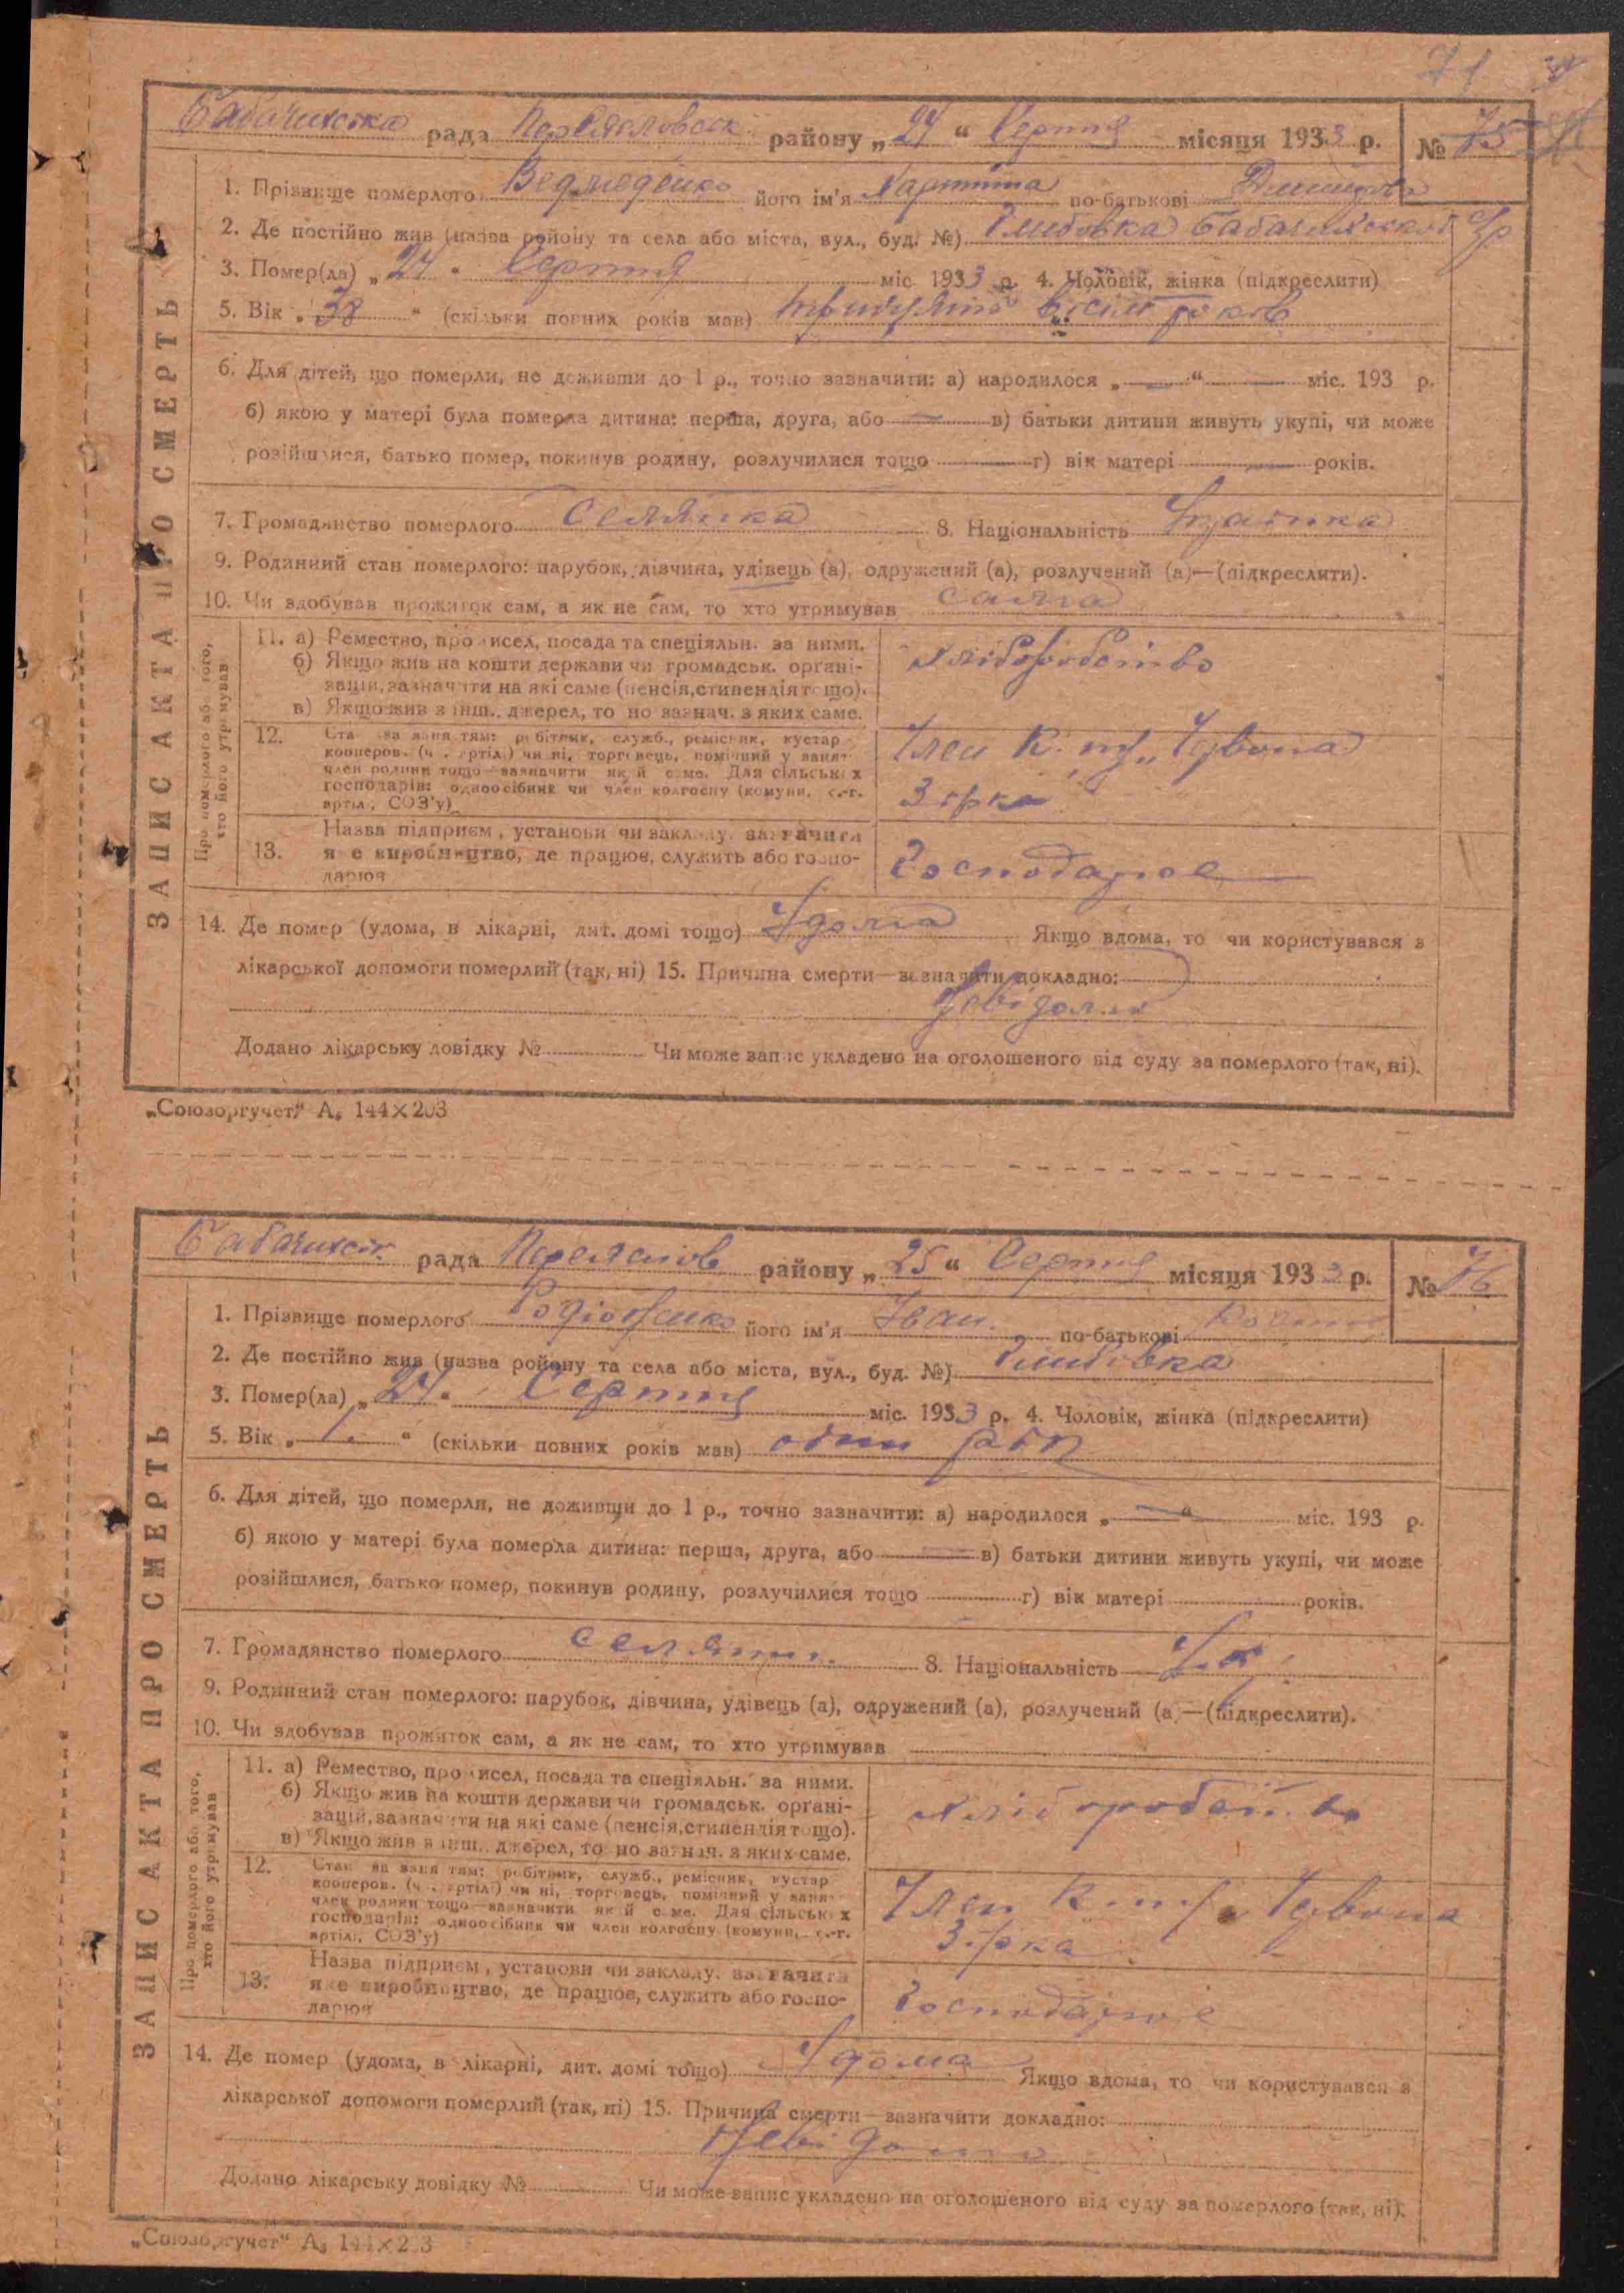 71
Бабачихська рада Переяславськ району „24“ Серпня місяця 1933 р. № 75
1. Прізвище померлого Ведмеденко його ім'я по-батькові
2. Де постійно жив (назва району та села або міста, вул., буд. №)
3. Помер(ла) „24“ Серпня міс 1933 р. 4. Чоловік, жінка (підкреслити)
5. Вік „38“ (скільки повних років мав) тридцять вісім років
6. Для дітей, що померли, не доживши до 1 р., точно зазначити: а) народилося „—“ — міс. 193 р.
б) якою у матері була померла дитина: перша, друга, або — в) батьки дитини живуть укупі, чи може
розійшлися, батько помер, покинув родину, розлучилися тощо — г) вік матері — років.
7. Громадянство померлого Селянка 8. Національність Українка
9. Родинний стан померлого: парубок, дівчина, удівець (а), одружений (а), розлучений (а)—(підкреслити).
10. Чи здобував прожиток сам, а як не сам, то хто утримував сама
ЗАПИС АКТА ПРО СМЕРТЬ
Про померлого або того,
хто його утримував
11. а) Ремество, промисел, посада та спеціяльн. за ними.
б) Якщо жив на кошти держави чи громадськ. орґані-
зацій, зазначити на які саме (пенсія, стипендія тощо).
в) Якщо жив з інш. джерел, то но зазнач. з яких саме.
Хліборобство
12. Стан за заняттям: робітник, служб., ремісник, кустар
кооперов. (ч. артілі) чи ні, торговець, помічний у занят-
член родини тощо—зазначити який саме. Для сільських
господарів: одноосібник чи член колгоспу (комуни, с.-г.
артілі, СОЗ'у)
Член к. г. „Червона
Зірка
13. Назва підприєм, установи чи закладу. зазначити
яке виробництво, де працює, служить або госпо-
дарює
Господарює
14. Де помер (удома, в лікарні, дит. домі тощо) Удома Якщо вдома, то чи користувався з
лікарської допомоги померлий (так, ні) 15. Причина смерти—зазначити докладно:
Невідома
Додано лікарську довідку № Чи може запис укладено на оголошеного від суду за померлого (так, ні).
„Союзоргучет“ А₅ 144×203
Бабачихськ рада Переяслов району „25“ Серпня місяця 1933 р. № 76
1. Прізвище померлого Родіоненко його ім'я Іван по-батькові
2. Де постійно жив (назва району та села або міста, вул., буд. №)
3. Помер(ла) „24“ Серпня міс. 1933 р. 4. Чоловік, жінка (підкреслити)
5. Вік „1“ (скільки повних років мав) один рік
6. Для дітей, що померли, не доживши до 1 р., точно зазначити: а) народилося „—“ міс. 193 р.
б) якою у матері була померла дитина: перша, друга, або — в) батьки дитини живуть укупі, чи може
розійшлися, батько помер, покинув родину, розлучилися тощо г) вік матері років.
7. Громадянство померлого селянин 8. Національність Укр.
9. Родинний стан померлого: парубок, дівчина, удівець (а), одружений (а), розлучений (а)—(підкреслити).
10. Чи здобував прожиток сам, а як не сам, то хто утримував
ЗАПИС АКТА ПРО СМЕРТЬ
Про померлого або того,
хто його утримував
11. а) Ремество, промисел, посада та спеціяльн. за ними.
б) Якщо жив на кошти держави чи громадськ. орґані-
зацій, зазначити на які саме (пенсія, стипендія тощо).
в) Якщо жив з інш. джерел, то но зазнач. з яких саме.
Хліборобство
12. Стан за заняттям: робітник, служб., ремісник, кустар
кооперов. (ч. артілі) чи ні, торговець, помічний у занят-
член родини тощо—зазначити який саме. Для сільських
господарів: одноосібник чи член колгоспу (комуни, с.-г.
артілі, СОЗ'у)
Член Червона
Зірка
13. Назва підприєм, установи чи закладу. зазначити
яке виробництво, де працює, служить або госпо-
дарює
Господарює
14. Де помер (удома, в лікарні, дит. домі тощо) Удома Якщо вдома, то чи користувався з
лікарської допомоги померлий (так, ні) 15. Причина смерти—зазначити докладно:
Невідома
Додано лікарську довідку № Чи може запис укладено на оголошеного від суду за померлого (так, ні).
„Союзоргучет“ А₅ 144×203